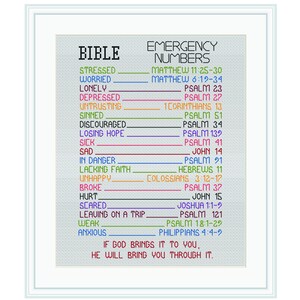 BIBLE EMERGENCY NUMBERS
STRESSED MATTHEW 11:25-30
WORRIED MATTHEW 6:19-34
LONELY PSALM 23
DEPRESSED PSALM 27
UNTRUSTING 1 CORINTHIANS 13
SINNED PSALM 51
DISCOURAGED PSALM 34
LOSING HOPE PSALM 139
SICK PSALM 41
SAD JOHN 14
IN DANGER PSALM 91
LACKING FAITH HEBREWS 11
UNHAPPY COLOSSIANS 3:12-17
BROKE PSALM 37
HURT JOHN 15
SCARED JOSHUA 1:1-9
LEAVING ON A TRIP PSALM 121
WEAK PSALM 18:1-29
ANXIOUS PHILIPPIANS 4:4-9
IF GOD BRINGS IT TO YOU,
HE WILL BRING YOU THROUGH IT.